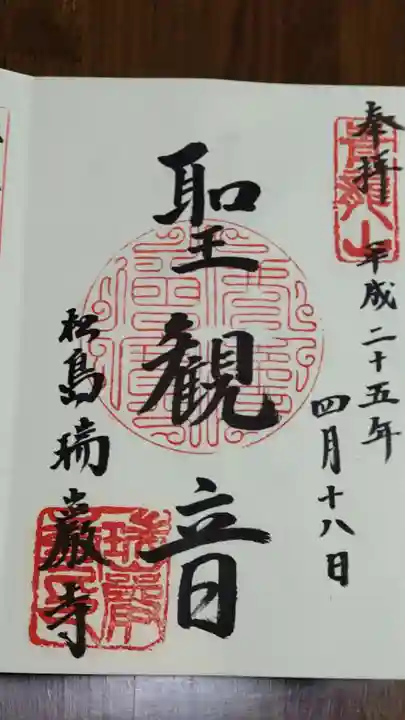 奉拝
平成二十五年
四月十八日
聖観音
松島瑞巌寺
青龍山